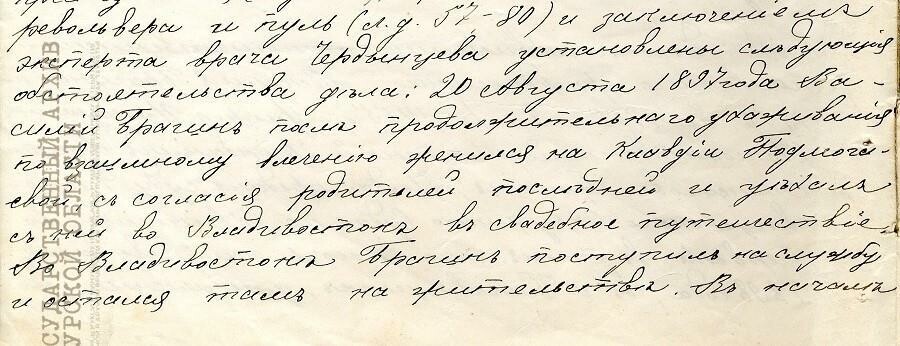 револьвера и пуль (л.д. 57-80) и заключеніемъ
эксперта врача Чердынцева установлены слѣдующія
обстоятельства дѣла: 20 Августа 1897 года Ва-
силій Брагинъ послѣ продолжительнаго ухаживанія
по взаимному влеченію женился на Клавдіи Подмога-
евой съ согласія родителей послѣдней и уѣхалъ
съ ней во Владивостокъ въ свадебное путешествіе.
Во Владивостокѣ Брагинъ поступилъ на службу
и остался тамъ на жительствѣ. Въ началѣ
СУДАРСТВЕННЫЙ АРХИВ
УРСКОЙ ОБЛАСТИ